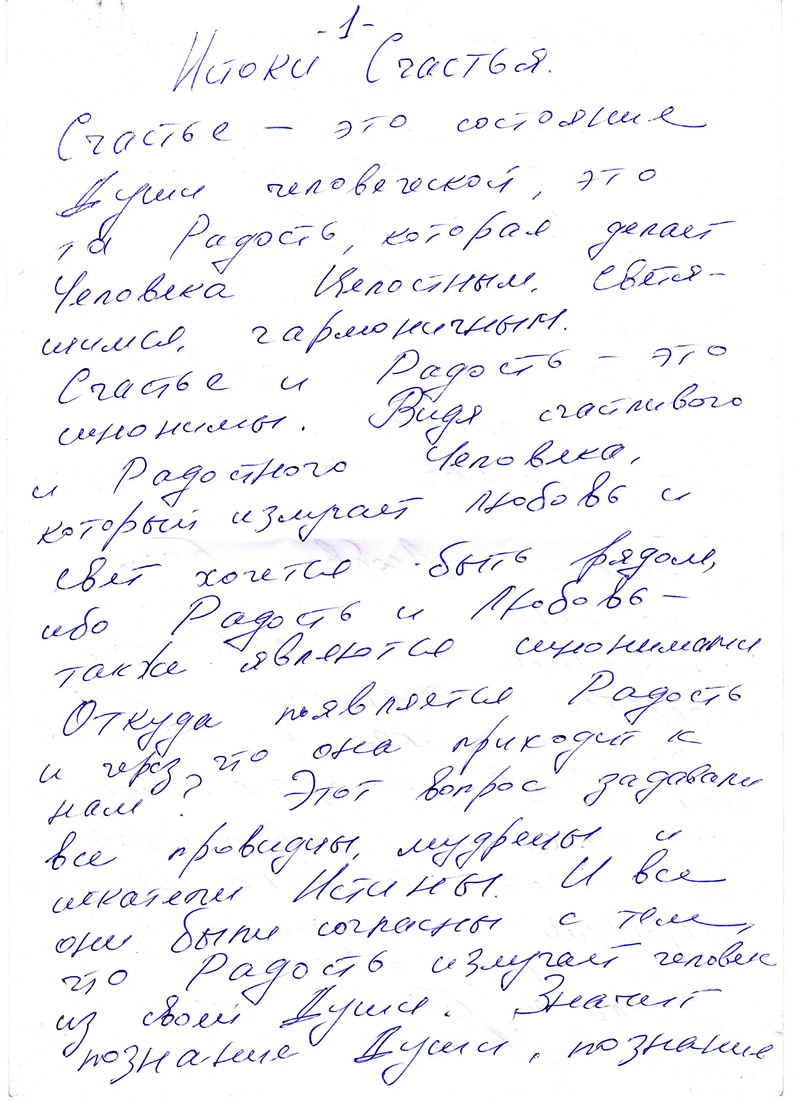 -1-
Истоки Счастья.
Счастье – это состояние
Души человеческой, это
та Радость, которая делает
Человека Целостным, светя-
щимся, гармоничным.
Счастье и Радость – это
синонимы. Видя счастливого
и Радостного Человека,
который излучает Любовь и
свет хочется быть рядом,
ибо Радость и Любовь –
также являются синонимами
Откуда появляется Радость
и через что она приходит к
нам? Этот вопрос задавали
все провидцы, мудрецы и
искатели Истины. И все
они были согласны с тем,
что Радость излучает человек
из своей Души. Значит
познание Души, познание